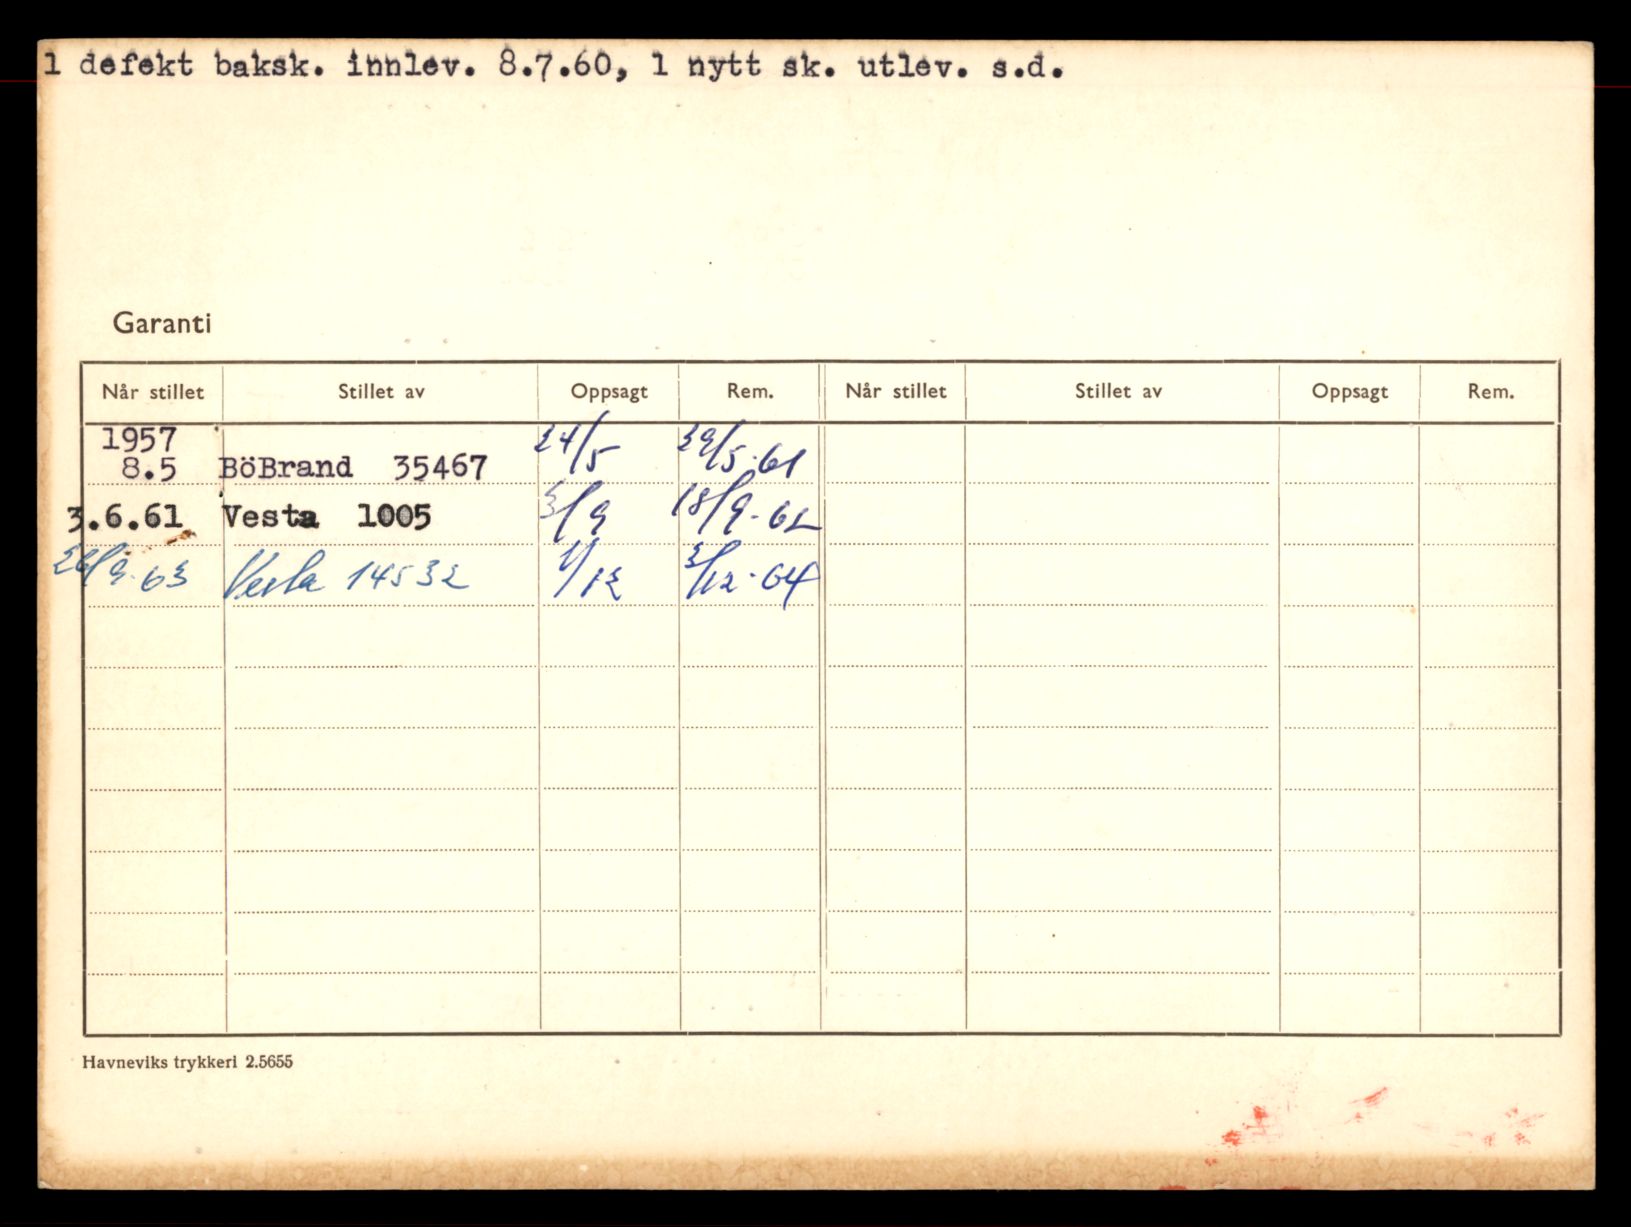 1 defekt baksk. innlev. 8.7.60, 1 nytt sk. utlev. s.d.
Garanti
Når stillet Stillet av Oppsagt Rem. Når stillet Stillet av Oppsagt Rem.
1957
8.5 BöBrand 35467 24/5 29/5.61
3.6.61 Vesta 1005 3/9 18/9-62
26/9.63 Vesta 14532 1/12 3/12.64
Havneviks trykkeri 2.5655